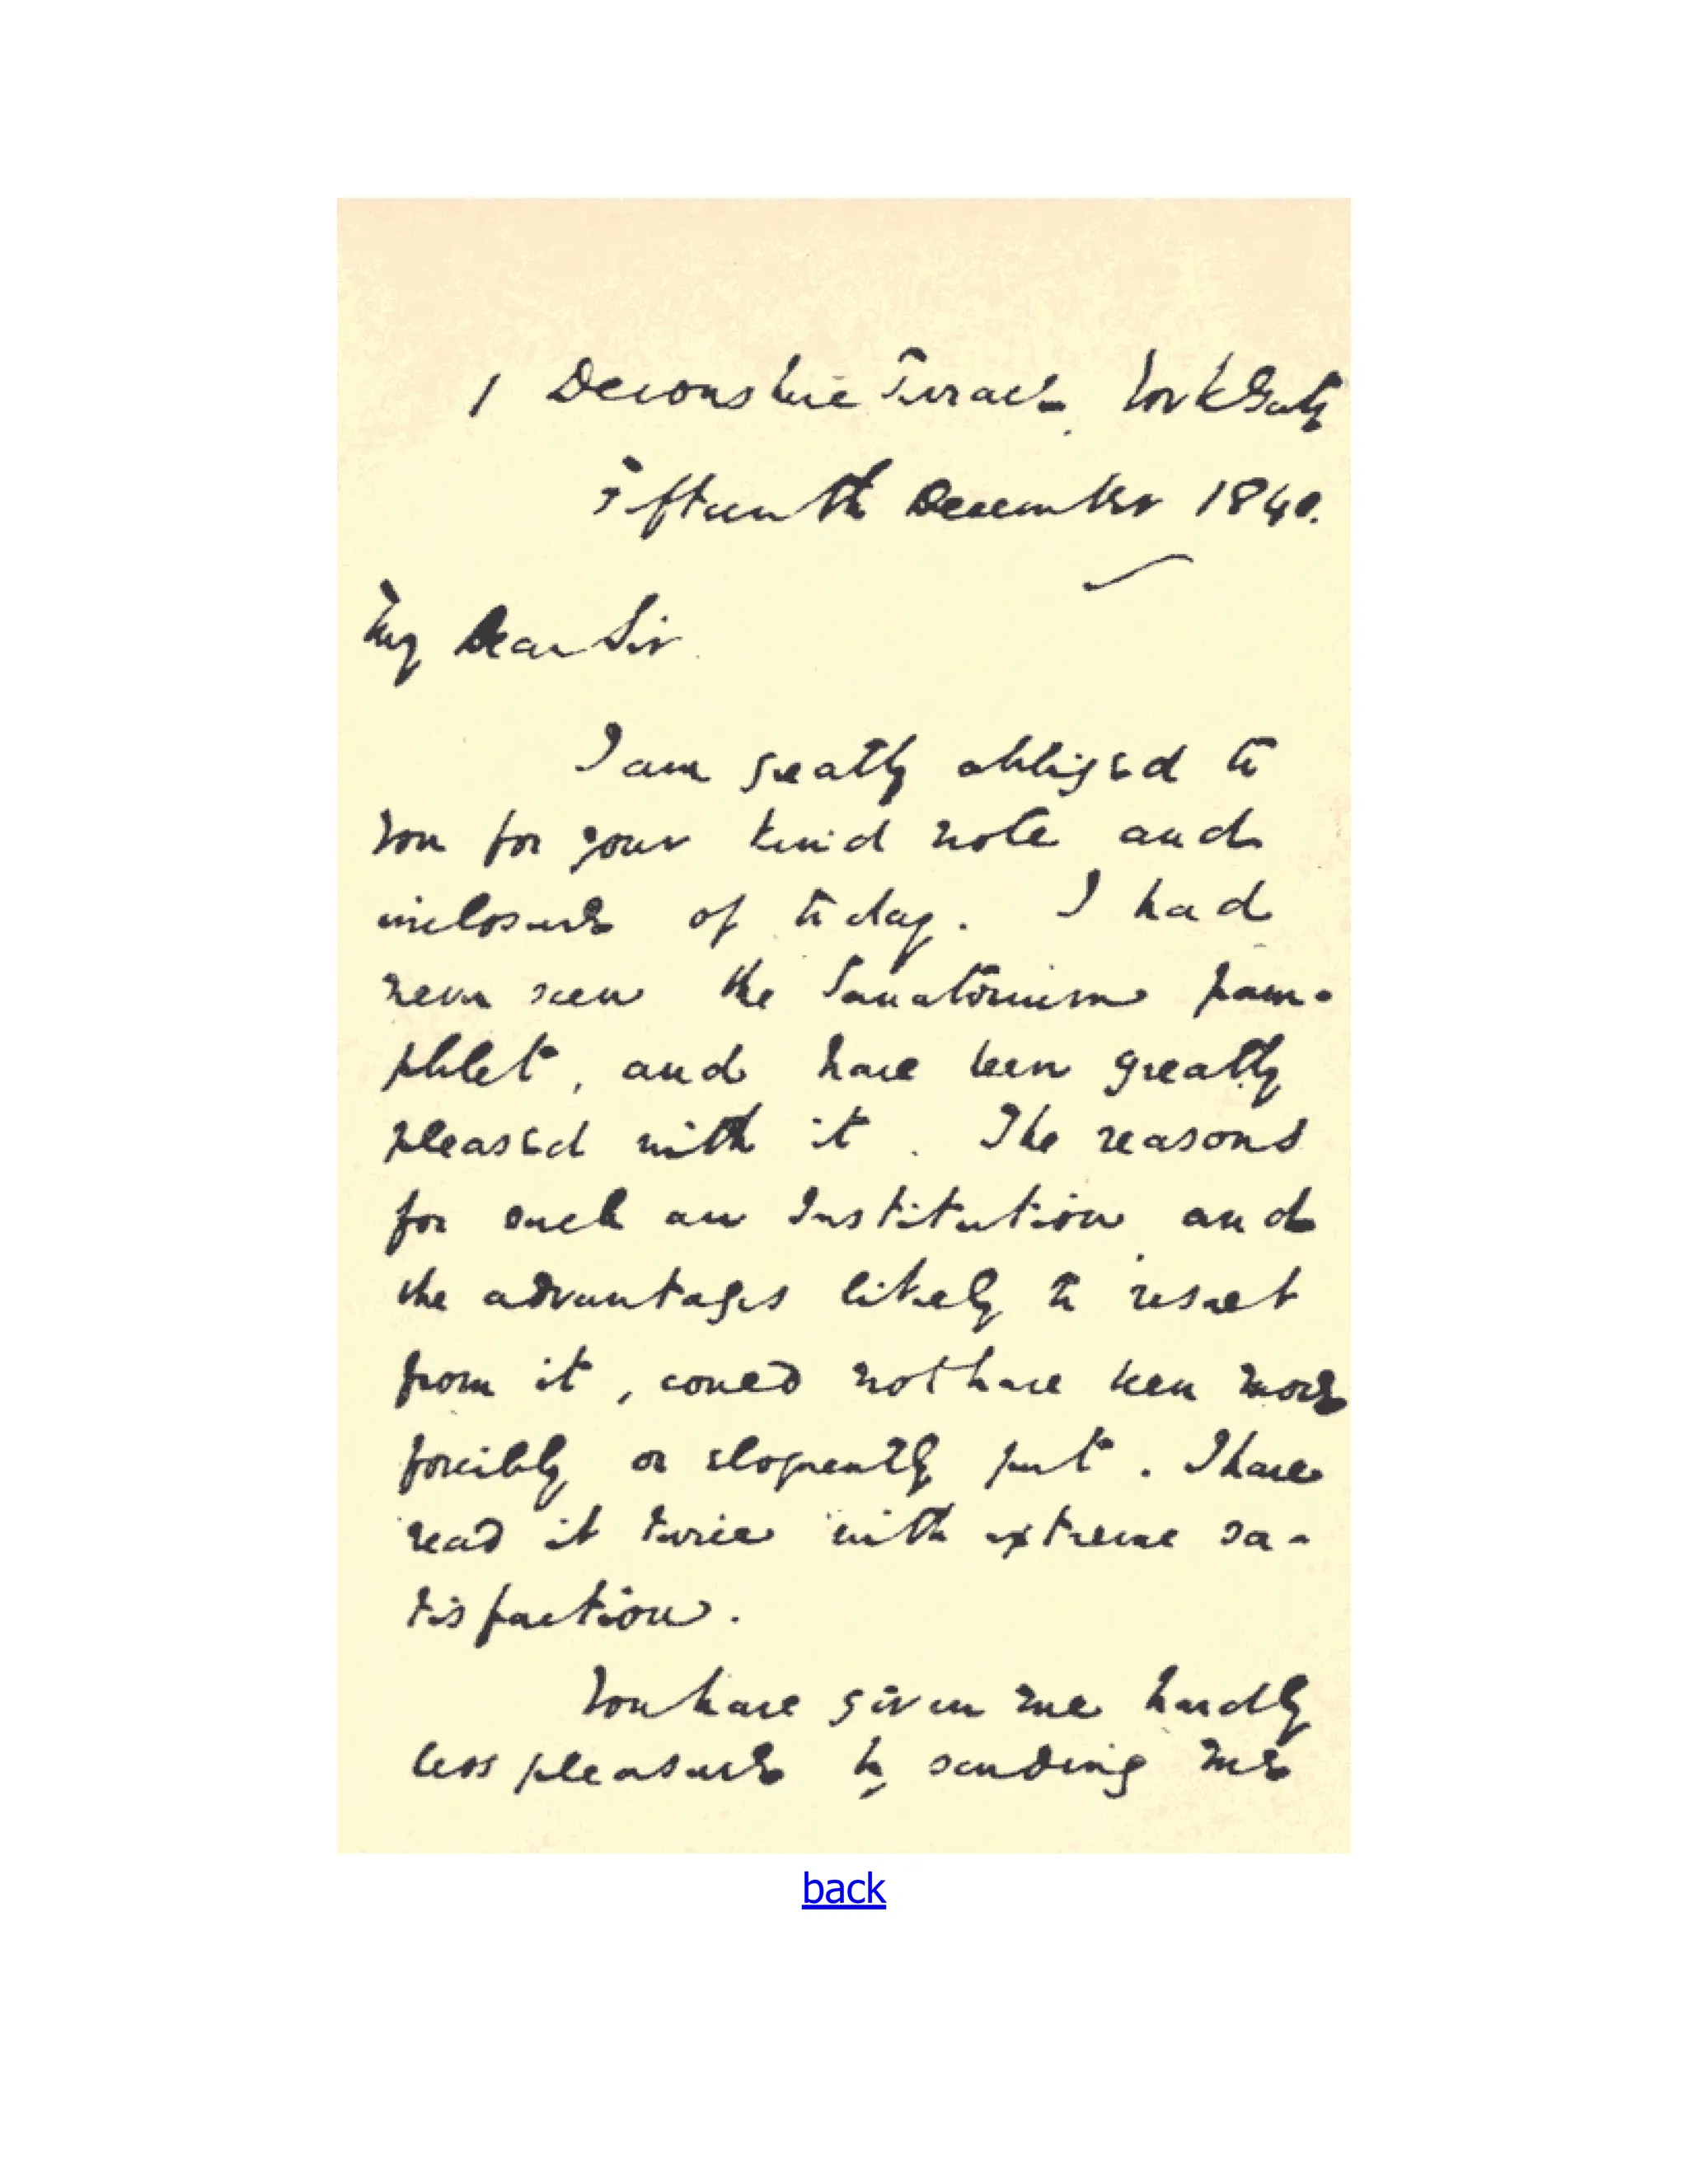 1 Devonshire Terrace, York Gate
Fifteenth December 1840.
My Dear Sir
I am greatly obliged to
You for your kind note and
inclosure of today. I had
never seen the Sanatorium pam-
phlet, and have been greatly
pleased with it. The reasons
for such an Institution and
the advantages likely to result
from it, could not have been more
forcibly or eloquently put. I have
read it twice with extreme sa-
tisfaction.
You have given me hardly
less pleasure by sending me
back